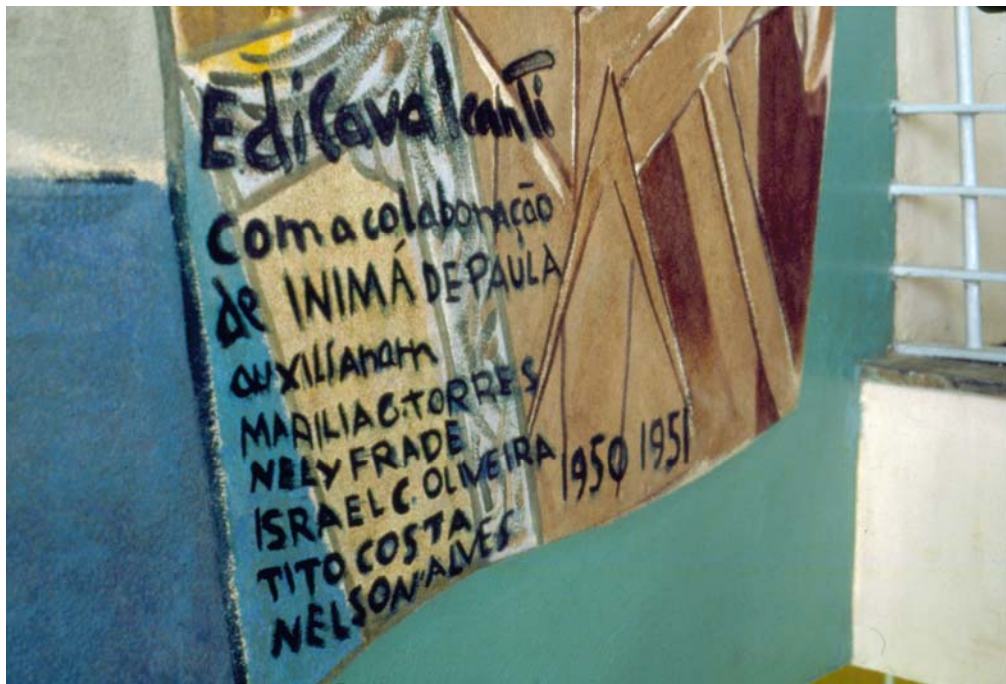 E. di Cavalcanti
com a colaboração
de INIMÁ DE PAULA
auxiliaram
MARILIA G. TORRES
NELY FRADE
ISRAEL C. OLIVEIRA
TITO COSTA
NELSON ALVES
1950 1951